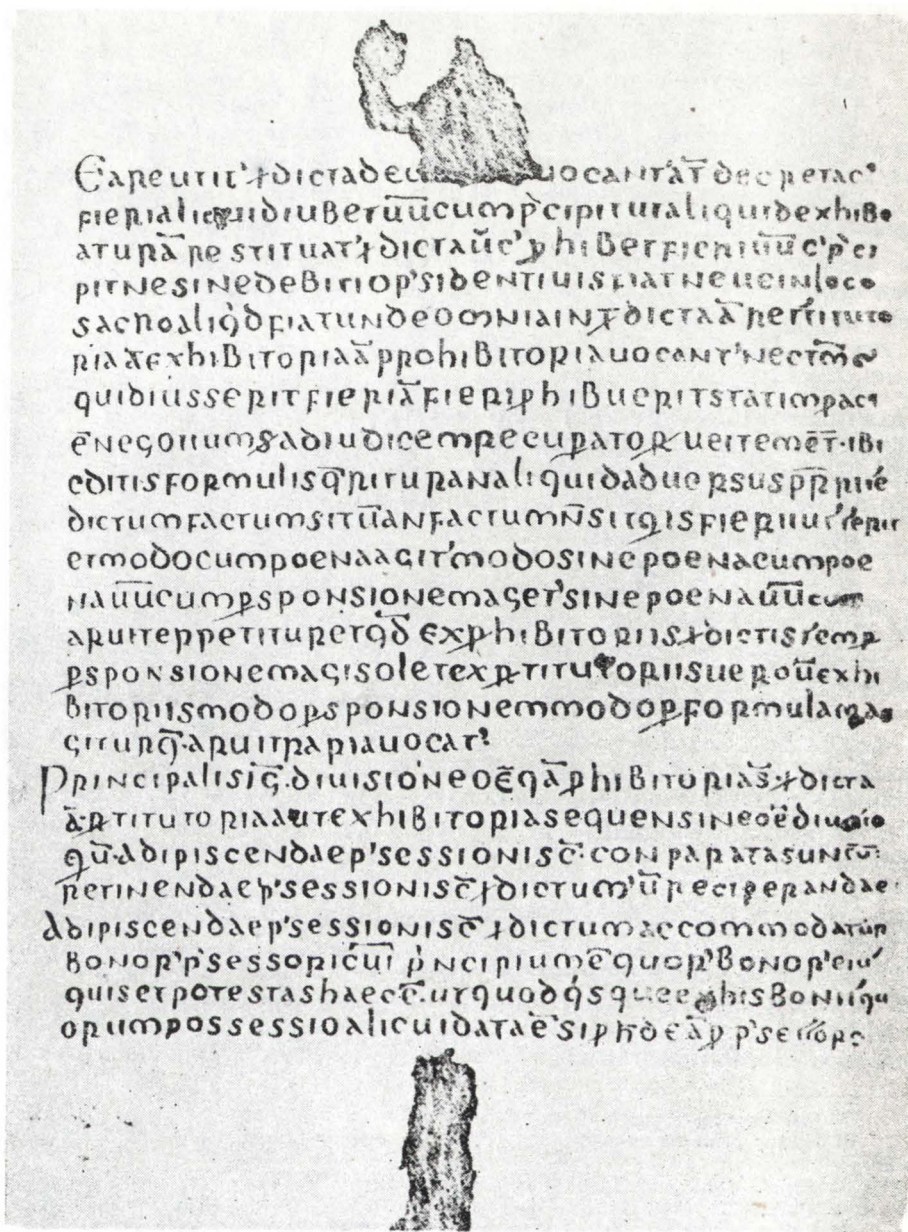 Eapeutit'ɟdictadec uocant'aт̄ decretac'
fierialiquidiubetuūcump̄cipituraliquidexhibe
aturā restituat'ɟdictaūc'ꝓhibetfieriuūc'p̄ci
pitnesinedebitiop'sidentiuisfiatneuéinloco
sacroaliq̇dfiatundeomniaint̵dictaā restituto
riaāexhibitoriaāprohibitoriauocant'nectm̄c
quidiusseritfieriāfieriꝓhibueritstatimpact
ēnegotiumsadiudicemrecuꝑatoꝛueitemēt·ibi
editisformulisq̄rituranaliquidaduersuspr̄
dictumfactumsitūanfactumn̄sitq̇isfieri
etmodocumpoenaagit'modosinepoenacumpoe
nauūcumꝑsponsionemaget'sinepoenauūcum
aruiteppetituretq̇d exꝓhibitoriisɟdictissemꝑ
ꝑsponsionemagisoletexꝛtitutoriisueroūexhi
bitoriismodoꝑsponsionemmodoꝑformulamag
gitурq̄·aruitrariauocat'
Principalisig̅·diuisioneoēq̇āꝓhibitorias̄ɟdicta
āꝛtitutoriaautexhibitoriasequensineoēdiuisio
qū·adipiscendaep'sessionisc̄·conparatasunt
retinendaep'sessionisc̄ɟdictum'ūreciperandae
Adipiscendaep'sessionisc̄ɟdictumaccommodatur
bonor'p'sessoricuī p̍ncipiumēquor'bonor'eiu'
quisetpotestashaecē·utquodq̇squeexhisboniṡqu
orumpossessioalicuidataē'siꝓhdeāꝓ p'se